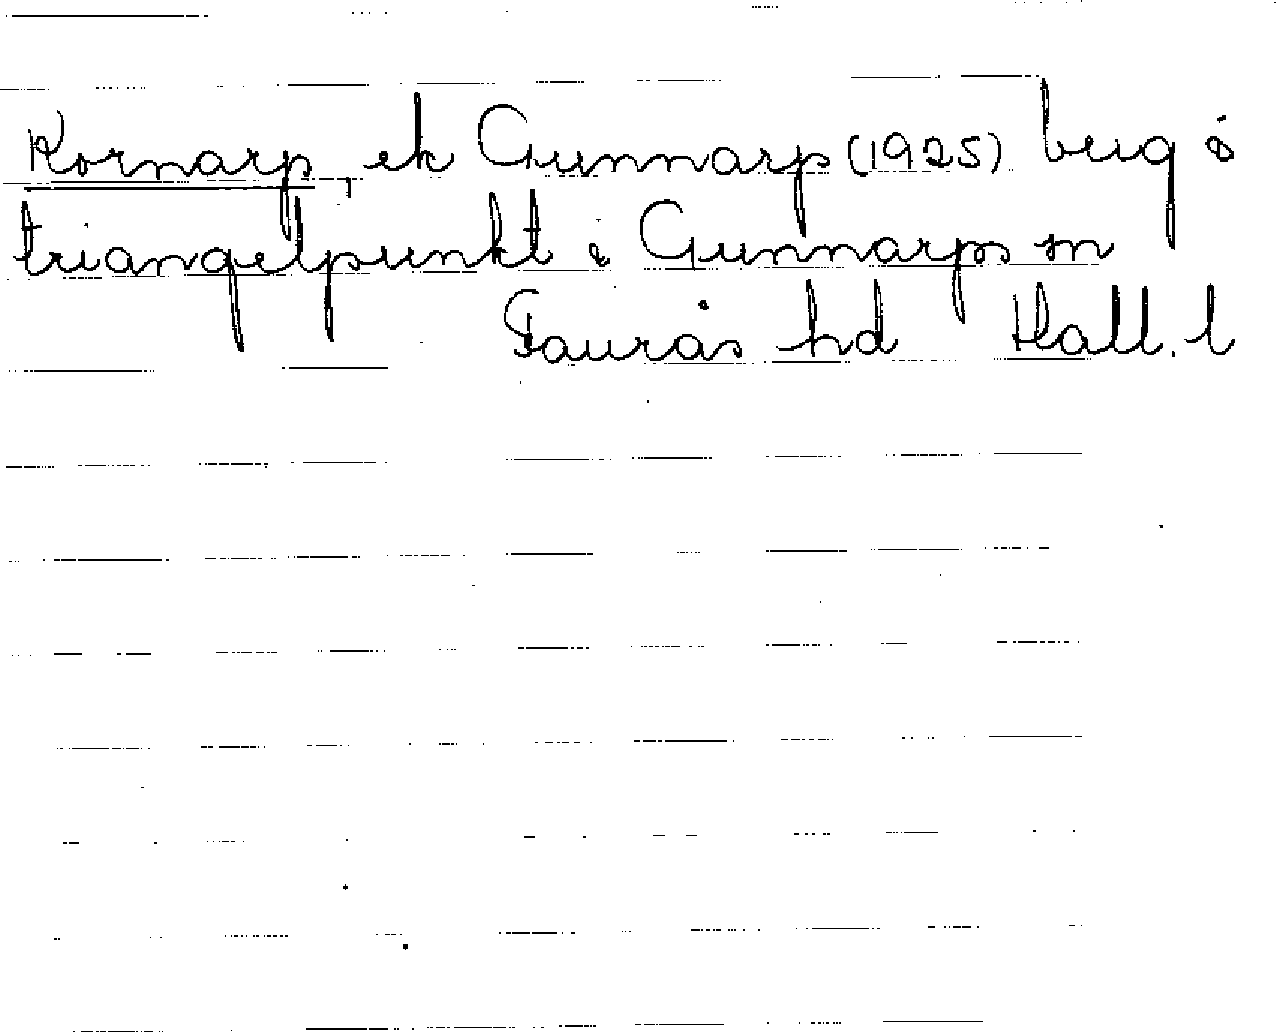 Kornarp, ek Gunnarp (1925) berg o
triangelpunkt i Gunnarps sn
Faurås hd Hall. l